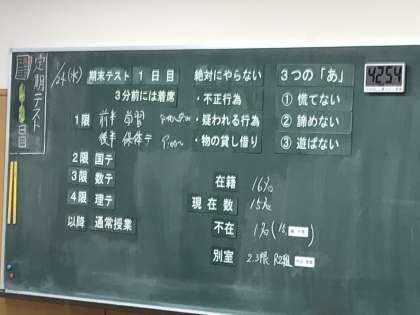 定期テスト
日目
1/24(水) 期末テスト 1日目
3分前には着席
1限 前半 学習
後半 保体テ
2限 国テ
3限 数テ
4限 理テ
以降 通常授業
絶対にやらない
・不正行為
・疑われる行為
・物の貸し借り
3つの「あ」
① 慌てない
② 諦めない
③ 遊ばない
在籍 16名
現在数 15名
不在 1名(15
別室 2.3限 R2組
42:54